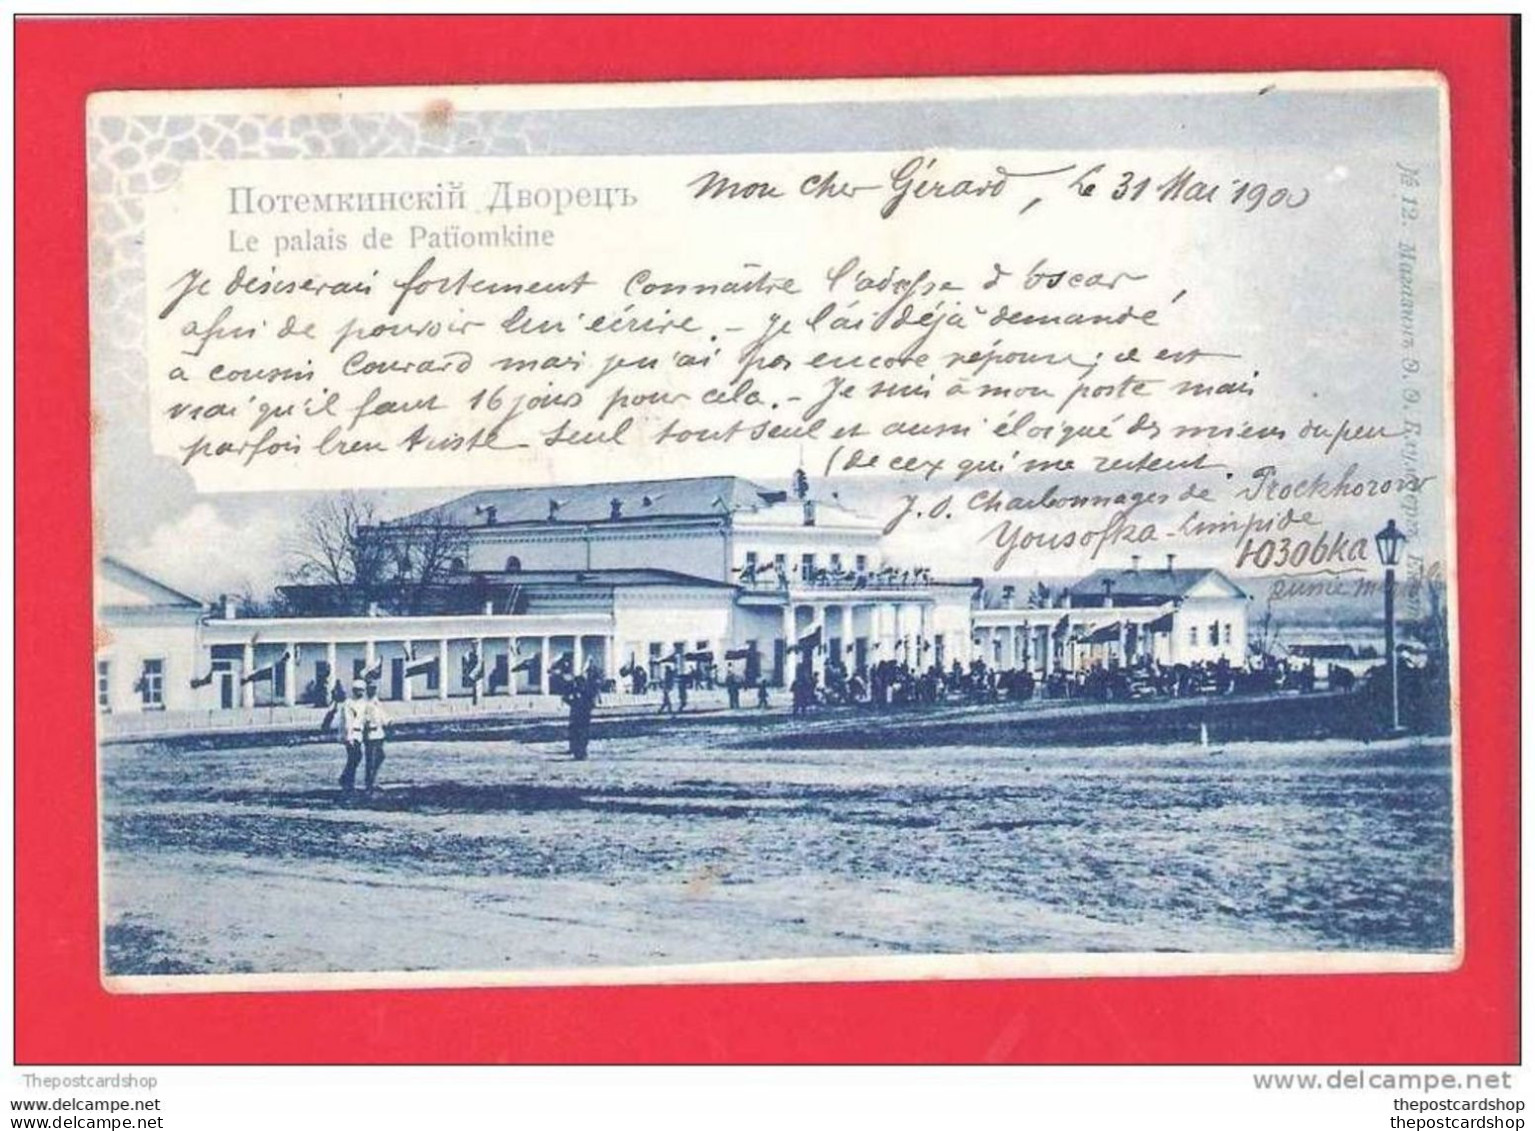 Потемкинскій Дворецъ
Le palais de Patïomkine
Mon cher Gérard, Le 31 Mai 1900
Je désirerais fortement connaître l'adresse d'Oscar,
afin de pouvoir lui écrire. - Je l'ai déjà demandé
à cousin Conrard mais je n'ai pas encore réponse; il est
vrai qu'il faut 16 jours pour cela. - Je suis à mon poste mais
parfois bien triste seul tout seul et aussi éloigné des miens du peu
(de cex qui me restent.
J. O. Charbonnages de Prockhorow
Yousofka-
Юзовка
№ 12.
Thepostcardshop
www.delcampe.net
thepostcardshop
thepostcardshop
thepostcardshop
thepostcardshop